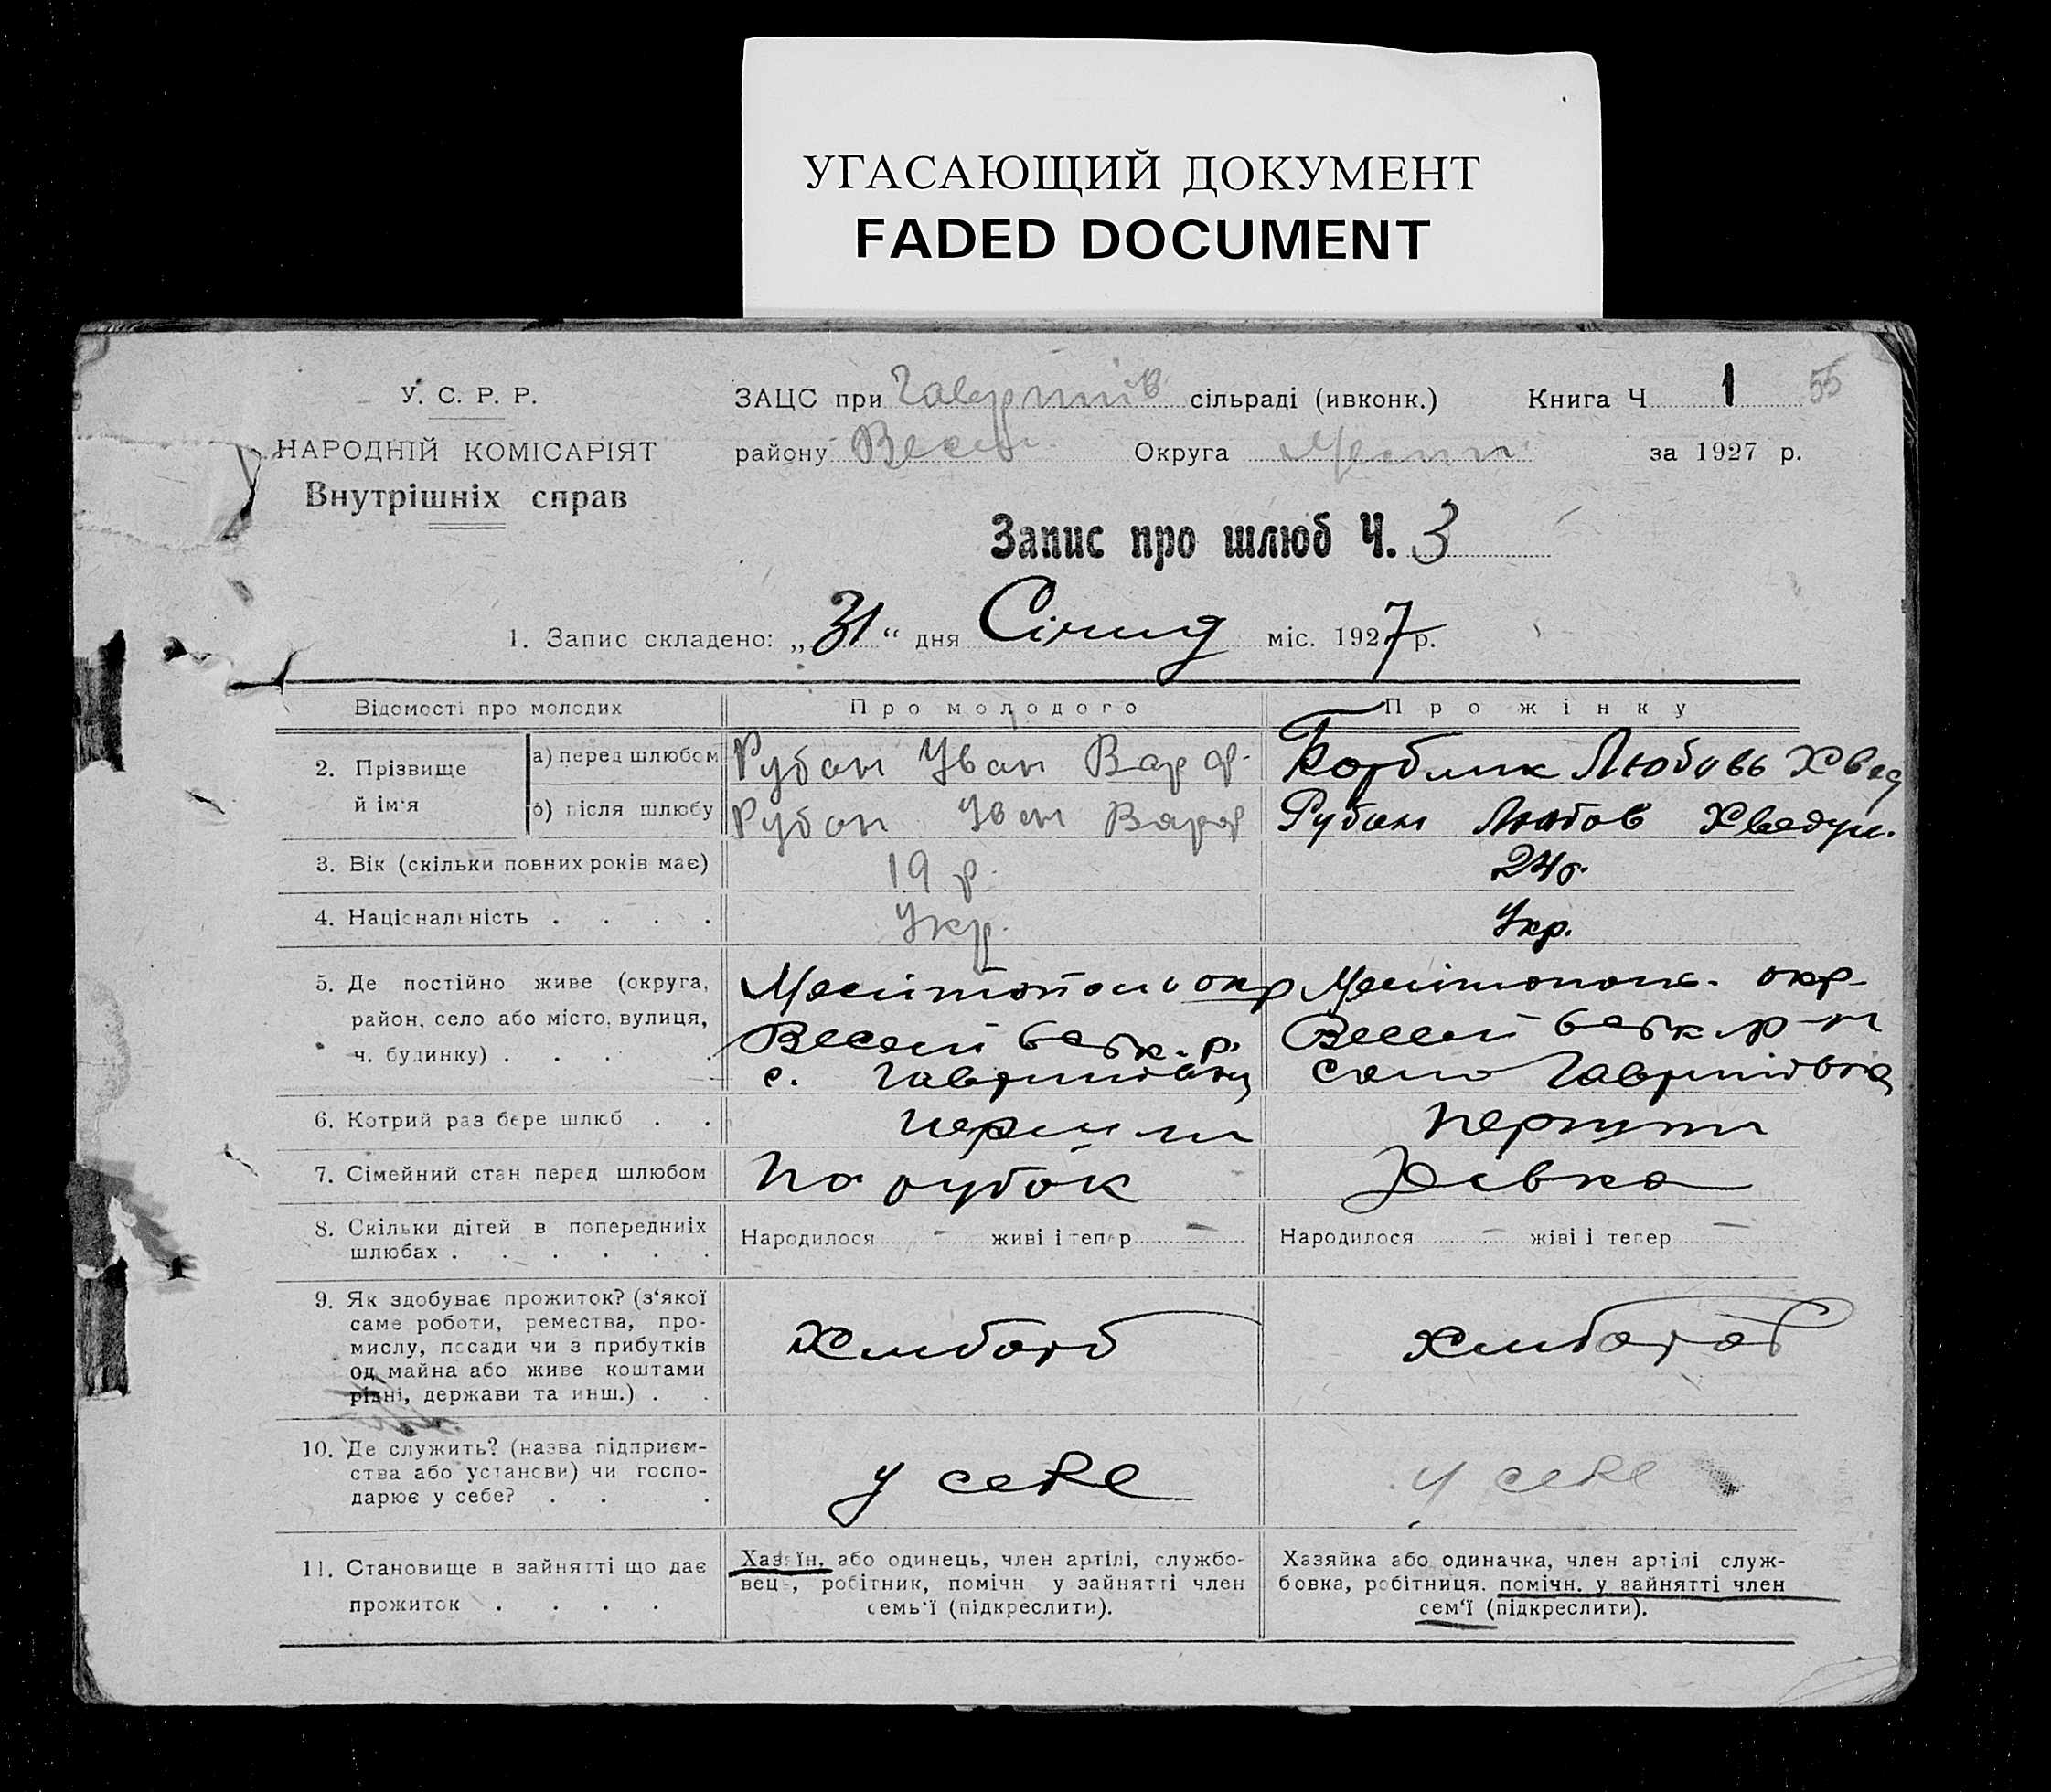 УГАСАЮЩИЙ ДОКУМЕНТ
FADED DOCUMENT
У. С. Р. Р.
НАРОДНІЙ КОМІСАРІЯТ
Внутрішніх справ
ЗАЦС при Гавришів сільраді (ивконк.) Книга Ч 1 55
району Весел. Округа Меліт за 1927 р.
Запис про шлюб Ч. 3
1. Запис складено: „31“ дня Січня міс. 1927 р.
Відомости про молодих Про молодого Про жінку
2. Прізвище й ім'я
а) перед шлюбом Рубан Іван Варф. Любовь Хвед
б) після шлюбу Рубан Іван Варф Рубан Любов
3. Вік (скільки повних років має) 19 р. 24 р.
4. Національність . . . . Укр. Укр.
5. Де постійно живе (округа, Мелітополь окр Мелітополь. окр-
район, село або місто, вулиця,
ч. будинку) . . . .
с. село
6. Котрий раз бере шлюб . . перши перши
7. Сімейний стан перед шлюбом Парубок Дівка
8. Скільки дітей в попередниіх Народилося - живі і тепер - Народилося - жіві і тепер -
шлюбах . . . . . .
9. Як здобуває прожиток? (з'якої
саме роботи, ремества, про-
мислу, посади чи з прибутків
од майна або живе коштами
рідні, держави та инш.) . . Хлибороб Хлибороб
10. Де служить? (назва підприєм-
ства або установи) чи госпо-
дарює у себе? . . . у себе у себе
11. Становище в зайнятті що дає
прожиток . . . .
Хазяїн, або одинець, член артілі, службо-
вець, робітник, помічн у зайнятті член
семь'ї (підкреслити).
Хазяйка або одиначка, член артілі служ-
бовка, робітниця. помічн. у зайнятті член
сем'ї (підкреслити).